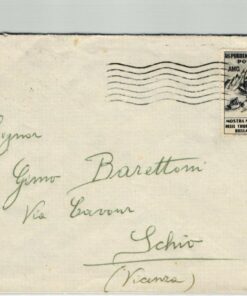 Signor
Gimo Barettoni
Via Cavour
Schio
(Vicenza)
MOSTRA